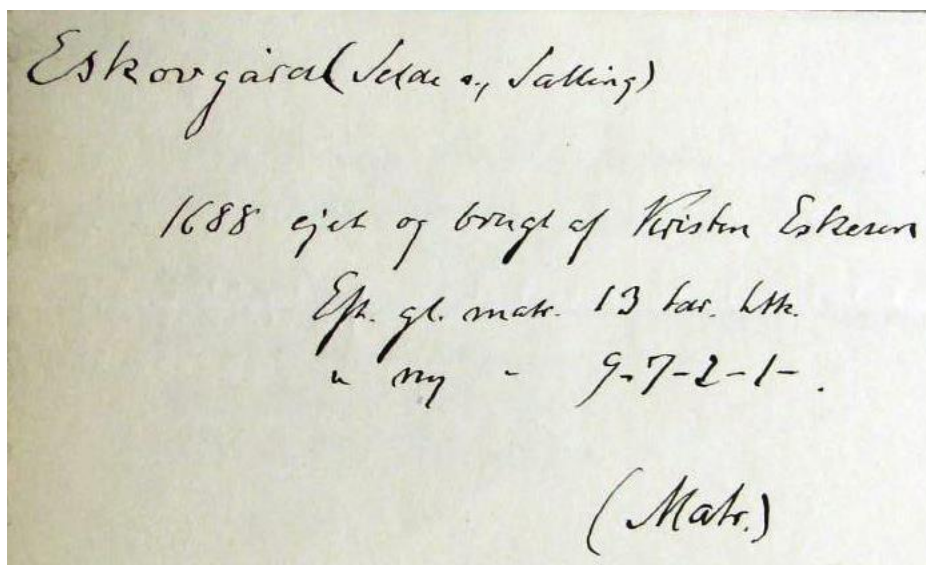 Eskovgård (Selde s., Salling)
1688 ejet og brugt af Kristen Eskesen
Eft. gl. matr. 13 tdr. htk.
" ny - 9-7-2-1-.
(Matr.)